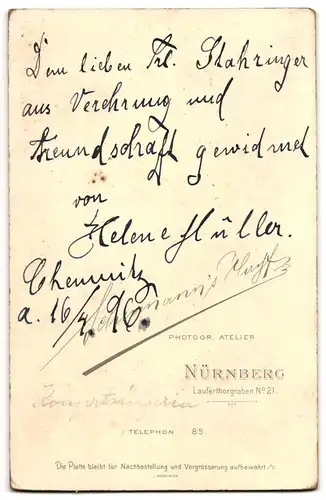 Dem lieben Frl. Stahringer
aus Verehrung und
Freundschaft gewidmet
von
Helene Müller.
Chemnitz
a. 16/4. 96.
PHOTOGR. ATELIER
NÜRNBERG
Lauferthorgraben No 21.
TELEPHON 85.
Die Platte bleibt für Nachbestellung und Vergrösserung aufbewahrt